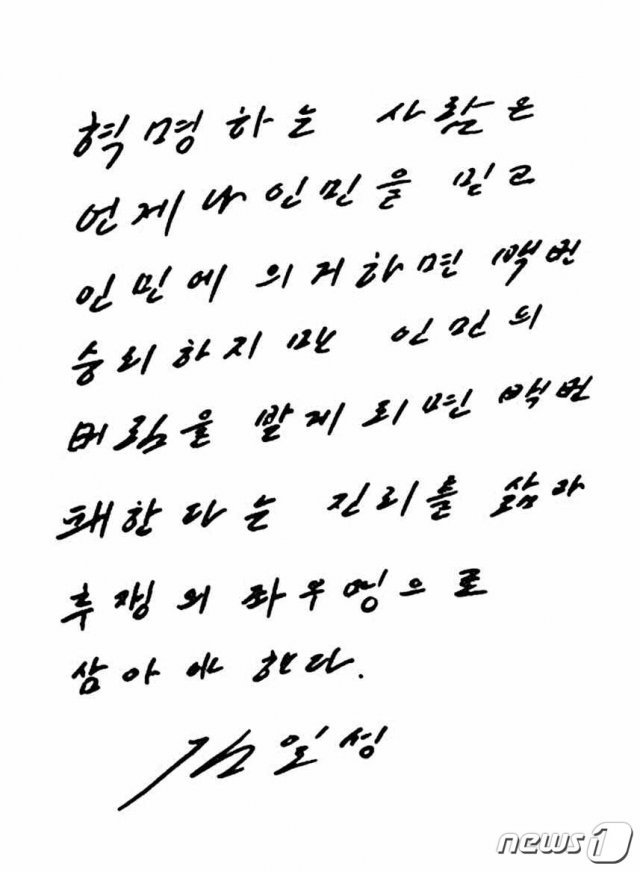 혁명하는 사람은
언제나 인민을 믿고
인민에 의거하면 백번
승리하지만 인민의
버림을 받게 되면 백번
패한다는 진리를 삶과
투쟁의 좌우명으로
삼아야 한다.
김일성
news1